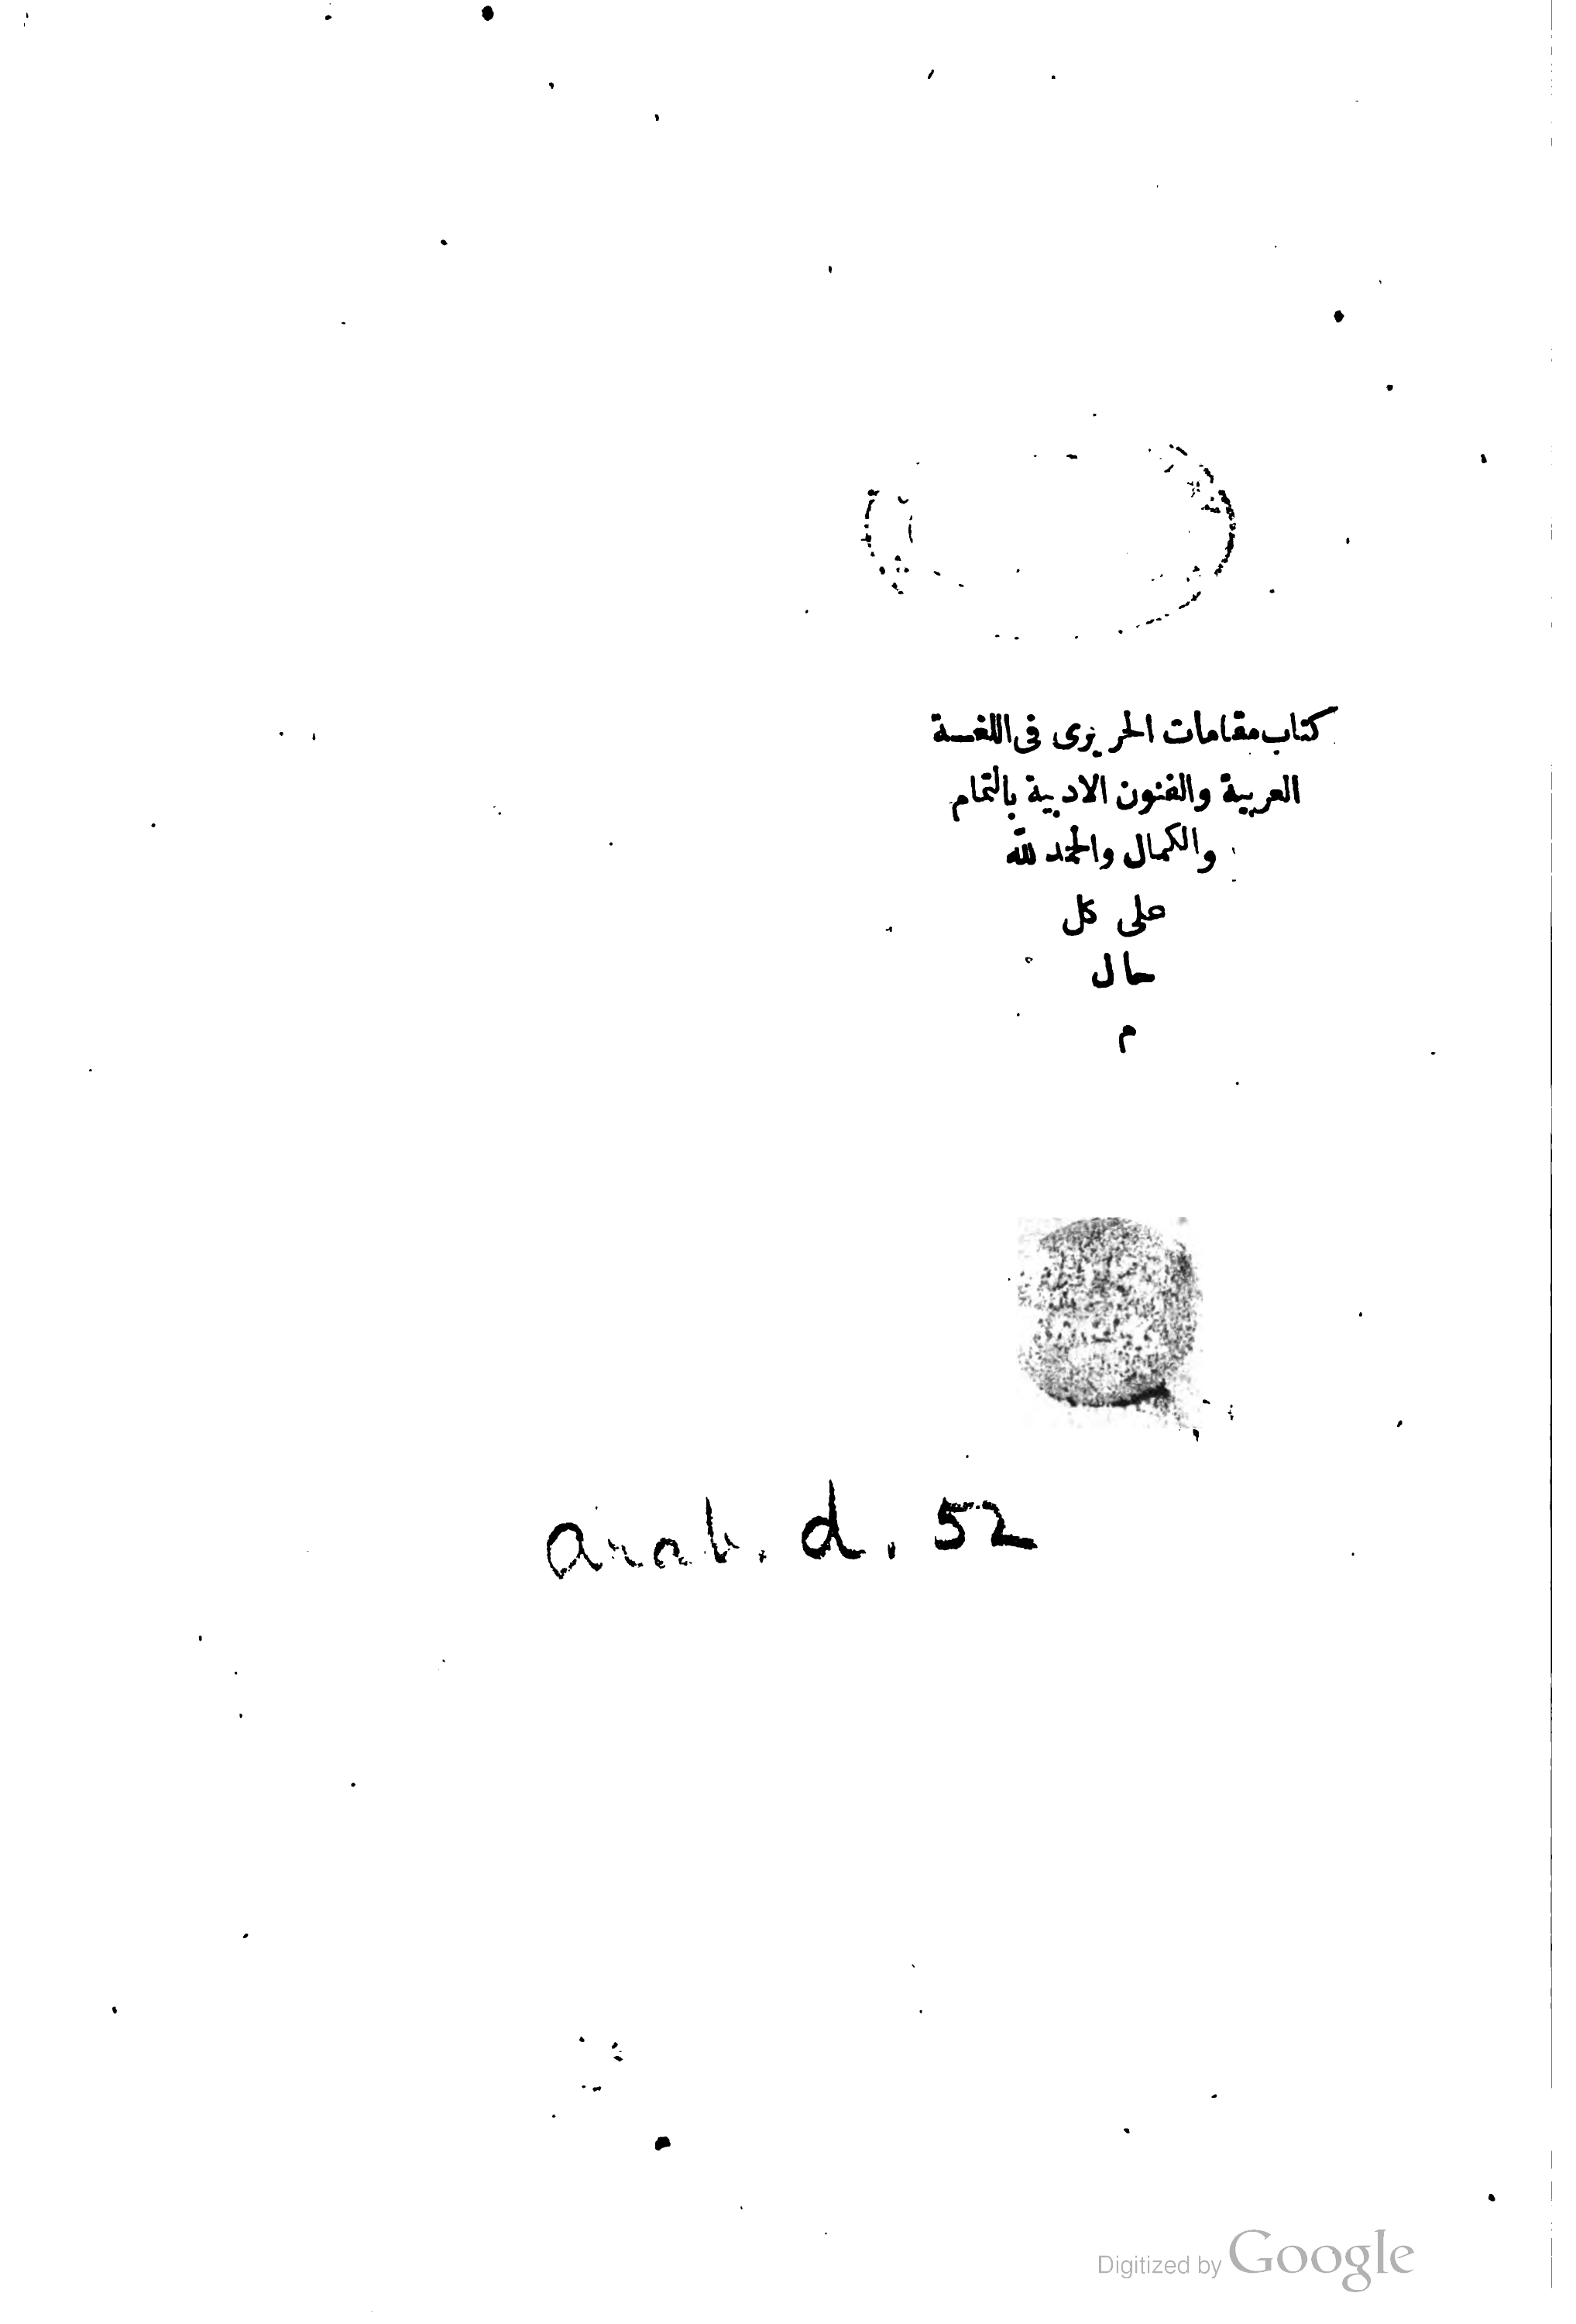 كتاب مقامات الحريرى فى اللغة
العربية والفنون الادبية بالتمام
والكمال والحمد لله
على كل
حال
م
arab. d. 52
Digitized by Google